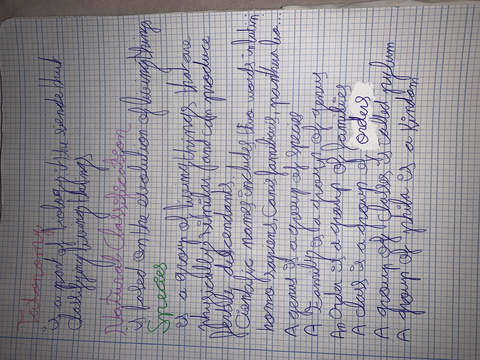 Taxonomy
is a part of biology, the science that
classifying living things
Natural Classification
is based on the evolution of living things
Species
is a group of living things that are
physically similar and can produce
fertile descendants
Cientific names includes two words in latin
homo sapiens, canis familiaris, panthera leo...
A genus is a group of species
A Family is a group of genus
An Order is a group of families
A class is a group of orders
A group of clases is called pylum
A group of phila is a Kindom